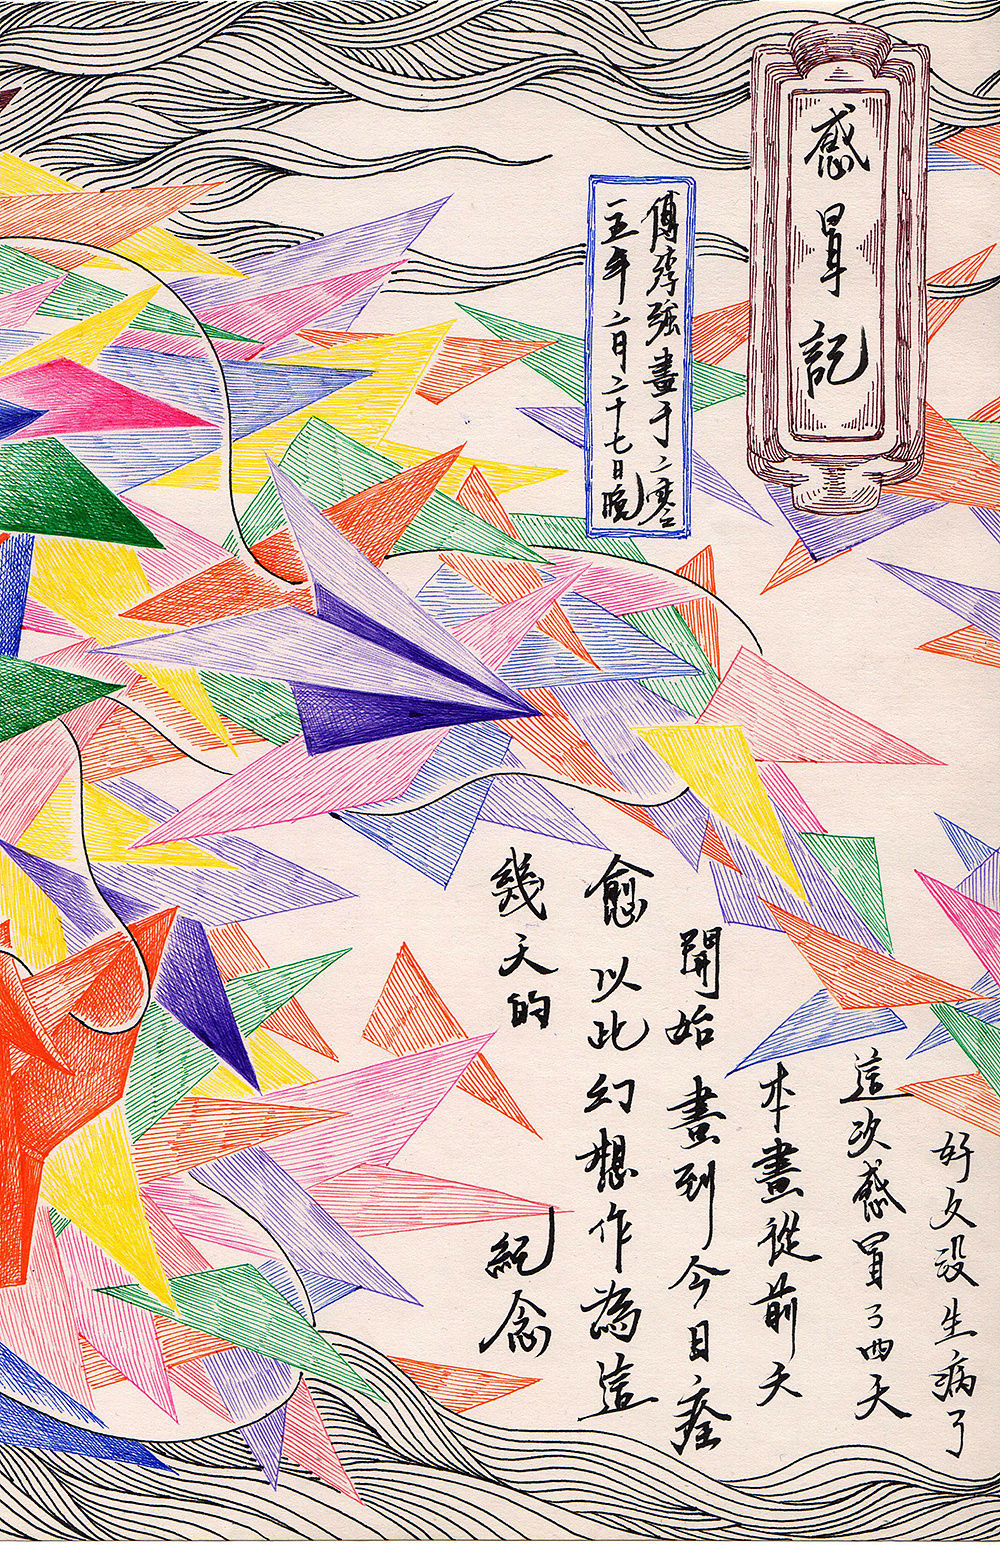 感冒記
強畫于二
一五年二月二十七日晚
好久沒生病了
這次感冒了四天
本畫從前天
開始畫到今日痊
愈以此幻想作為這
幾天的紀念